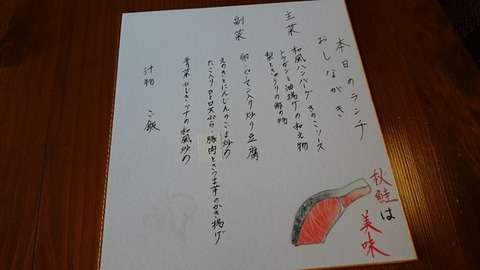 本日のランチ
おしながき
主菜
和風ハンバーグ きのこソース
トウガンと油揚げの和え物
梨ときゅうりの酢の物
副菜
卵・ピーマン入り炒り豆腐
えのきとにんじんのごま炒め
豚肉とさつま芋のかき揚げ
青菜
ツナの和風炒め
汁物 ご飯
秋鮭は
美味